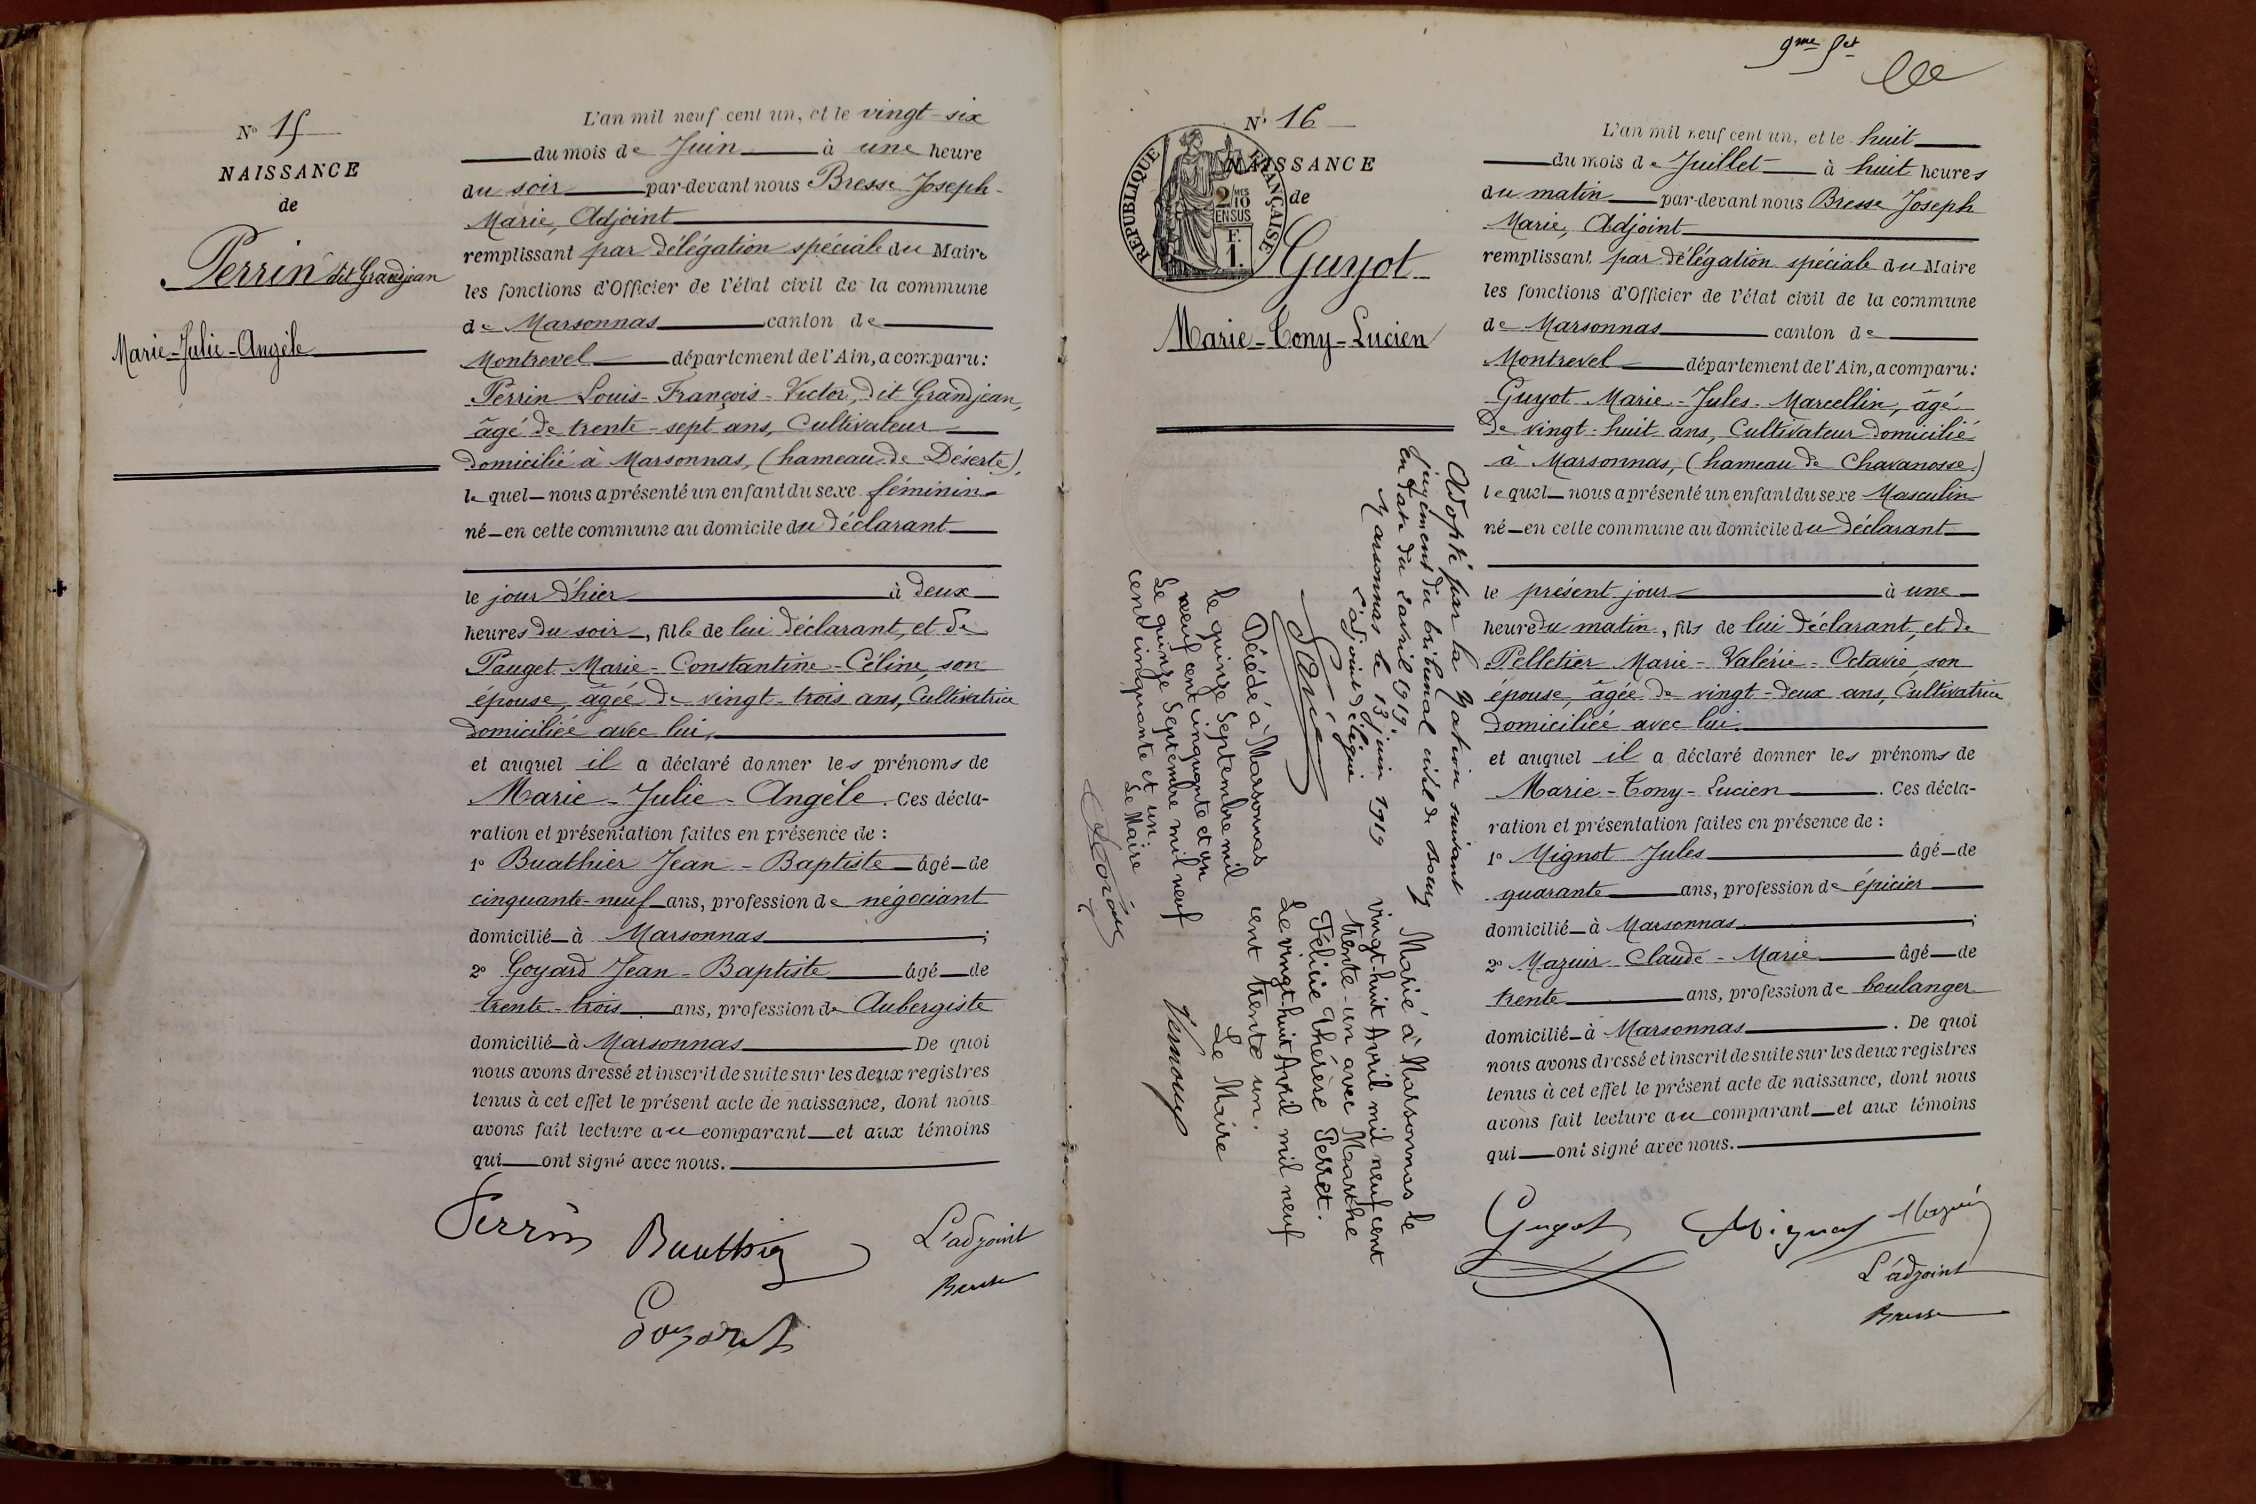 N° 15
NAISSANCE
de
Perrin dit Grandjean
Marie-Julie-Angèle
L'an mil neuf cent un, et le vingt-six
du mois de Juin à une heure
du soir par-devant nous Bresse Joseph-
Marie, Adjoint
remplissant par délégation spéciale du Maire
les fonctions d'Officier de l'état civil de la commune
de Marsonnas canton de
Montrevel département de l'Ain, a comparu:
Perrin Louis-François-Victor, dit Grandjean,
âgé de trente-sept ans, Cultivateur
domicilié à Marsonnas, (hameau de Déserte),
lequel nous a présenté un enfant du sexe féminin
né en cette commune au domicile du déclarant
le jour d'hier à deux
heures du soir, fille de lui déclarant, et de
Pauget Marie-Constantine-Céline, son
épouse, âgée de vingt-trois ans, Cultivatrice
domiciliée avec lui,
et auquel il a déclaré donner les prénoms de
Marie-Julie-Angèle. Ces décla-
ration et présentation faites en présence de :
1° Buathier Jean-Baptiste âgé de
cinquante-neuf ans, profession de négociant
domicilié à Marsonnas ;
2° Goyard Jean-Baptiste âgé de
trente-trois ans, profession de Aubergiste
domicilié à Marsonnas De quoi
nous avons dressé et inscrit de suite sur les deux registres
tenus à cet effet le présent acte de naissance, dont nous
avons fait lecture au comparant et aux témoins
qui ont signé avec nous.
Perrin Buathier L'adjoint
Bresse
Goyard
9me
N° 16
NAISSANCE
de
REPUBLIQUE FRANÇAISE
2/10 MES
EN SUS
F.
1.
Guyot
Marie-Tony-Lucien
Adopté par la Nation suivant
jugement du tribunal civil de Bourg
en date du 2 avril 1919
Marsonnas le 13 juin 1919
L'adjoint délégué
Décédé à Marsonnas
le quinze Septembre mil
neuf cent cinquante et un
Le quinze Septembre mil neuf
cent cinquante et un
Le Maire
Marié à Marsonnas le
vingt-huit Avril mil neuf cent
trente-un avec Marthe
Félicie Thérèse Perret.
Le vingt-huit Avril mil neuf
cent trente un.
Le Maire
Vernoux
L'an mil neuf cent un, et le huit
du mois de Juillet à huit heures
du matin par-devant nous Bresse Joseph
Marie, Adjoint
remplissant par délégation spéciale du Maire
les fonctions d'Officier de l'état civil de la commune
de Marsonnas canton de
Montrevel département de l'Ain, a comparu:
Guyot Marie-Jules-Marcellin, âgé
de vingt-huit ans, Cultivateur domicilié
à Marsonnas, (hameau de Chavanosse)
lequel nous a présenté un enfant du sexe Masculin
né en cette commune au domicile du déclarant
le présent jour à une
heure du matin, fils de lui déclarant, et de
Pelletier Marie-Valérie-Octavie, son
épouse, âgée de vingt-deux ans, Cultivatrice
domiciliée avec lui.
et auquel il a déclaré donner les prénoms de
Marie-Tony-Lucien. Ces décla-
ration et présentation faites en présence de :
1° Mignot Jules âgé de
quarante ans, profession de épicier
domicilié à Marsonnas ;
2° Mazuir Claude-Marie âgé de
trente ans, profession de boulanger
domicilié à Marsonnas. De quoi
nous avons dressé et inscrit de suite sur les deux registres
tenus à cet effet le présent acte de naissance, dont nous
avons fait lecture au comparant et aux témoins
qui ont signé avec nous.
Guyot Mignot Mazuir
L'adjoint
Bresse